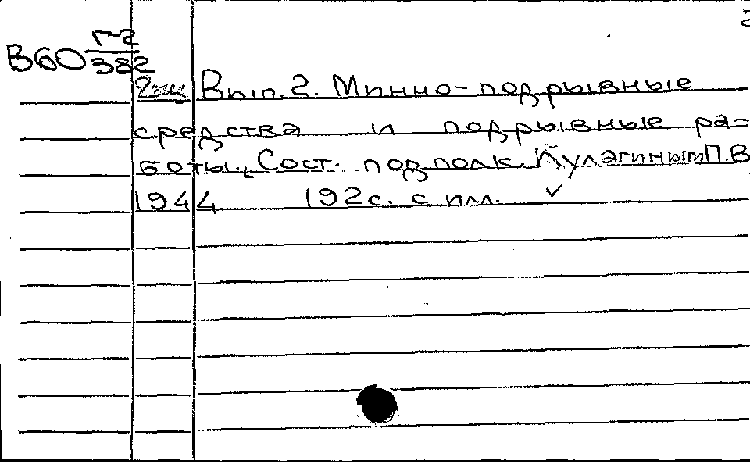 2
В60 Г-2
382
2экз Вып. 2. Минно-подрывные
средства и подрывные ра-
боты. Сост. подполк. Кулагиным П.В
1944 192с. с илл. ✓